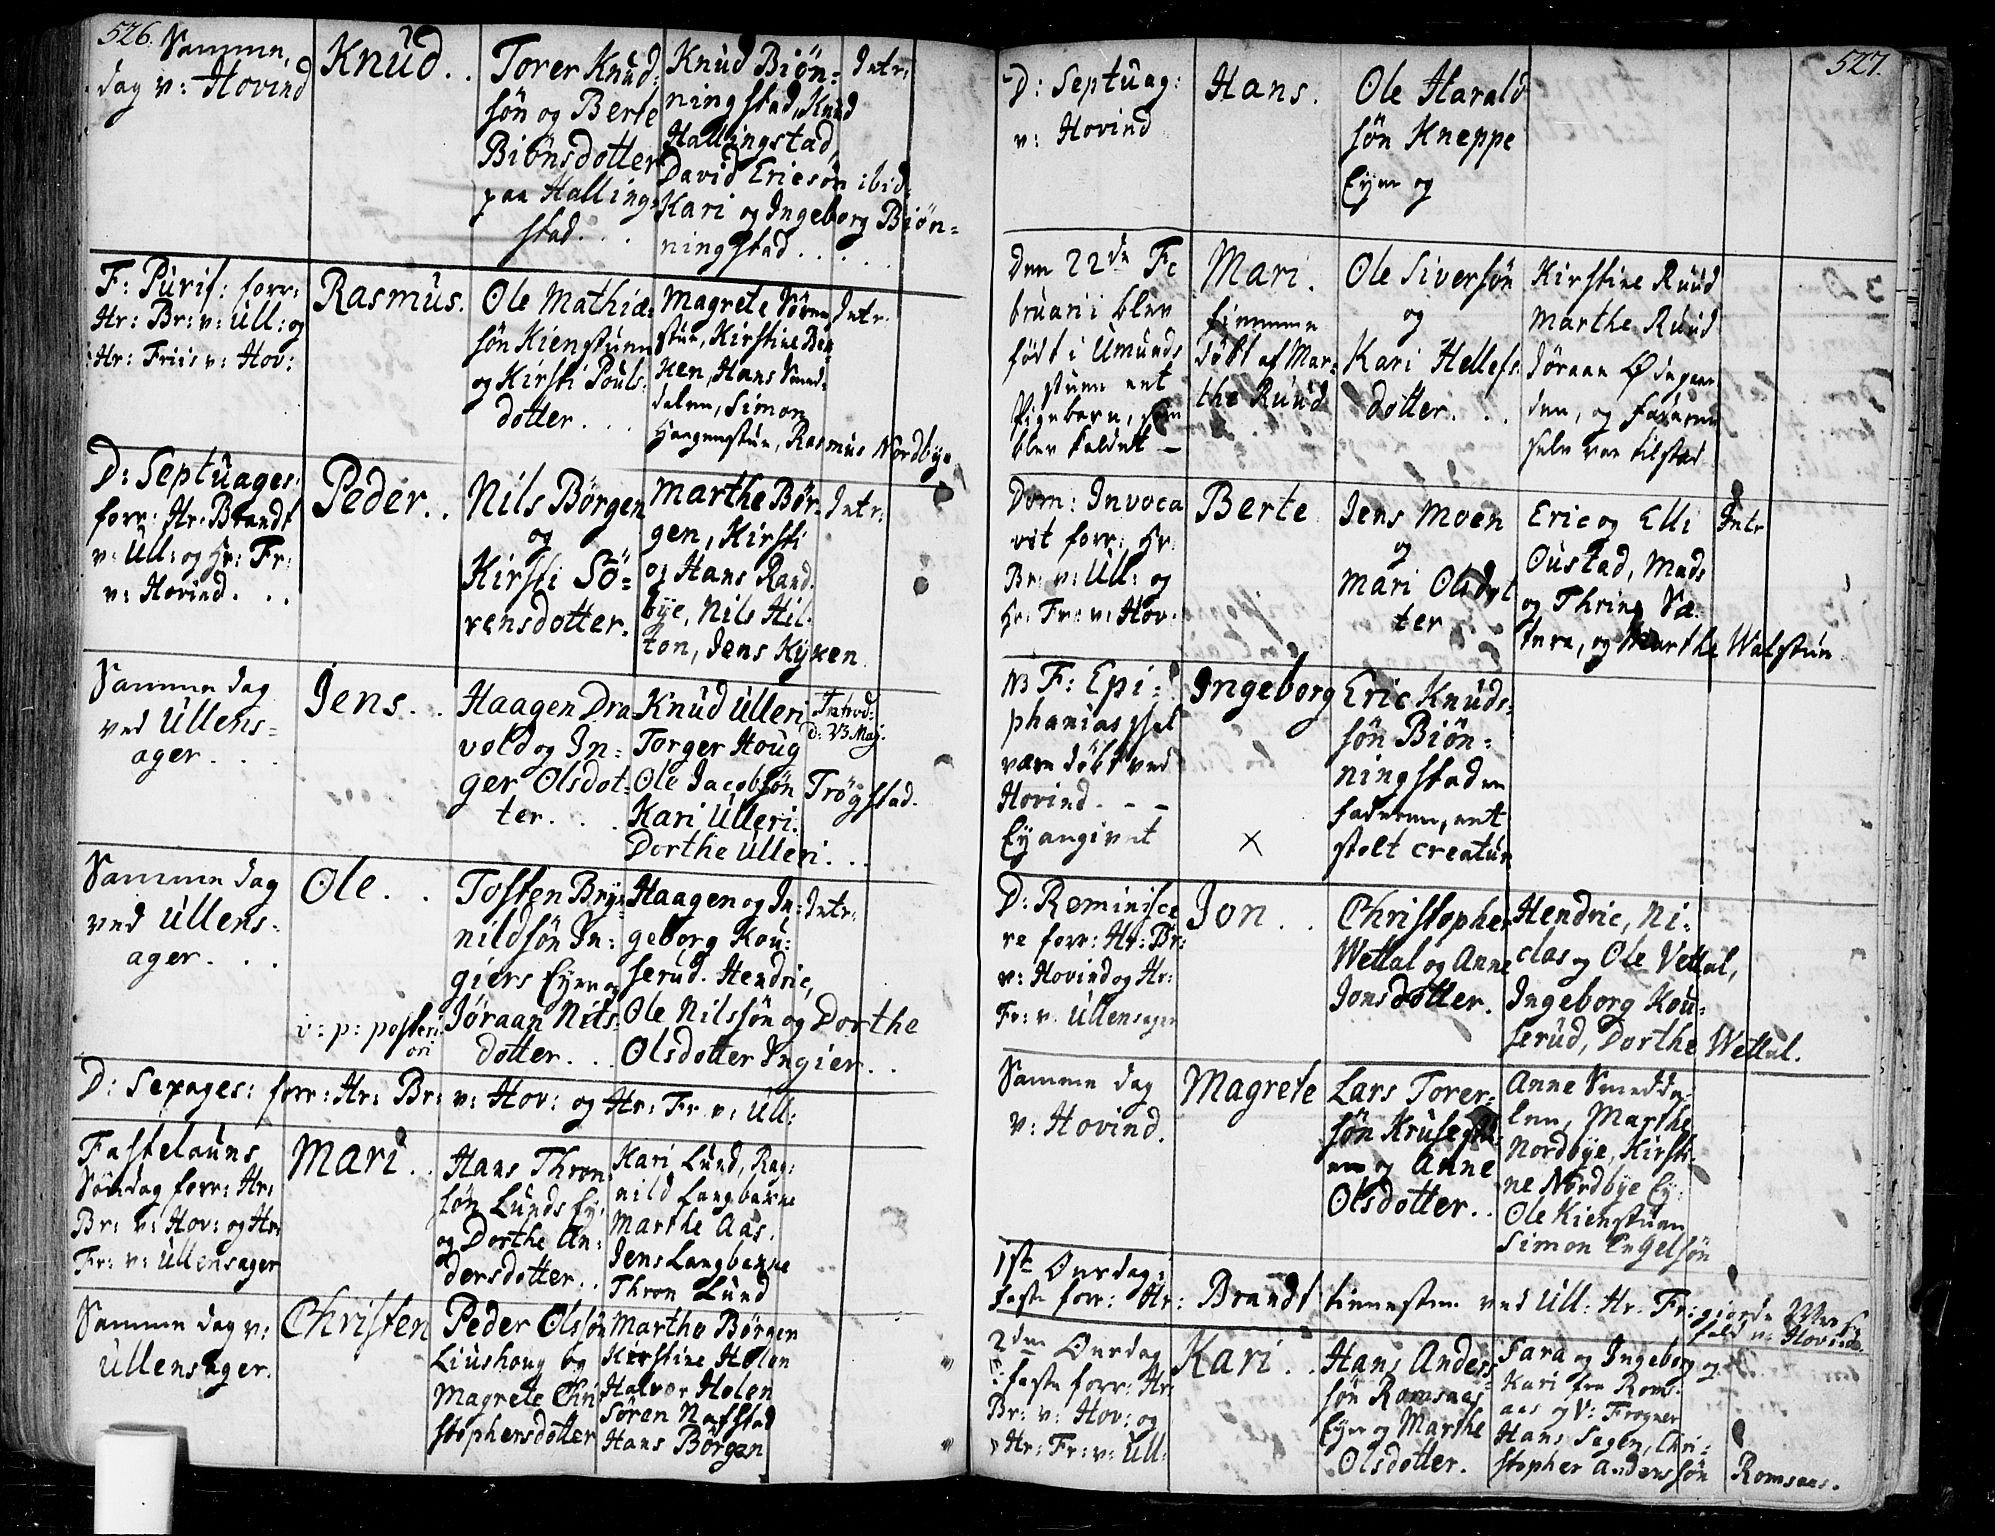 526.
Samme
dag v: Hovind
Knud..
Torer Knud:
søn og Berte
Biønsdotter
paa Halling
stad...
Knud Biøn=
ningstad, Knud
Hallingstad,
David Ericsøn ibid:
Kari og Ingeborg Biøn=
ningstad.....
Intr:
F: Purif: forr:
Hr: Br: v: Ull: og
Hr: Friis v: Hov:
Rasmus.
Ole Mathiæ
søn Kienstuen
og Kirsti Pouls
dotter...
Magrete Søren
stue, Kirstine Bek
ken, Hans Smed
dalen, Simon
Haugenstue, Rasmus Nordbye
Intr.
D: Septuages:
forr: Hr. Brandt
v: Ull: og Hr: Fr:
v: Hovind...
Peder..
Nils Børgen
og
Kirsti Sö=
rensdotter.
Marthe Bør
gen, Kirsti
og Hans Rand.
bye, Nils Hil
ton, Jens Kyxen
Intr:
Samme dag
ved Ullens=
ager...
Jens..
Haagen Dra
vold og In=
ger Olsdot=
ter...
Knud Ulleri
Torger Houg
Ole Jacobsøn
Kari Ulleri.
Dorthe Ulleri...
Introd:
d: 23 Maj.
Trögstad.
Samme dag
ved Ullens=
ager...
Ole..
v: p: posteri
ori
Tosten Bryn
nildsøn In=
giers Eyer og
Jøraan Nils
dotter...
Haagen og In=
geborg Kou=
serud. Hendric,
Ole Nilssøn og Dorthe
Olsdotter Ingier..
Intr:
D: Sexages: forr: Hr: Br: v: Hov: og Hr: Fr v: Ull:
Fastelauns
Søndag forr: Hr:
Br: v: Hov: og Hr:
Fr: v: Ullensager
Mari..
Hans Thron
søn Lunds Ey:
og Dorthe An=
dersdotter..
Kari Lund, Rag:
nild Langbakke
Marthe Aas.
Jens Langbakke
Thron Lund
Samme dag v:
Ullensager.
Christen
Peder Olsøn
Liushoug og
Magrete Chri
stophersdotter
Marthe Børgen
Kirstine Holen
Halvor Holen
Søren Nafstad
Hans Børgen
527.
D: Septuag:
v: Hovind
Hans.
Ole Harald
søn Kneppe
Eyer og
Den 22de Fe
bruarii blev
født i Amunds
stuen et
Pigebarn, som
blev kaldet -
Mari.
hiemme
døbt af Mar=
the Ruud
Ole Siversøn
og
Kari Hellefs
dotter...
Kirstine Ruud
Marthe Ruud
Jøraan Ødegaar
den, og Faderen
selv var tilstæd
Dom: Invoca
vit forr: Hr
Br: v: Ull: og
Hr: Fr: v: Hov.
Berte
Jens Moen
og
Mari Olsdot
ter
Eric og Elli
Oustad, Mads
og Thrine Sæ=
tere, og Marthe Walstue
Intr
NB F: Epi=
phanias skal
være døbt ved
Hovind. - -
Ey angivet
Ingeborg
×
Eric Knuds=
søn Biøn=
ningstad
Faderen, et
stolt creatur
D: Reminisce
re forr: Hr: Br:
v: Hovind og Hr:
Fr: v. Ullensager
Jon..
Christopher
Wettal og Anne
Jonsdotter.
Hendric, Ni=
clas og Ole Vettal,
Ingeborg Kou=
serud, Dorthe Wettal.
Samme dag
v: Hovind.
Magrete
Lars Torer=
søn
og Anne
Olsdotter..
Anne Smedda=
len, Marthe
Nordbye, Kirsti=
ne Nordbye Ey:
Ole Kienstuen
Simon Engelsøn
1ste Onsdag
faste forr: Hr: Brandt tienesten ved Ull: Hr. Fr: giorde Messe
fald v: Hovind.
2den Onsdag
i faste forr: Hr
Br: v: Hov: og
Hr: Fr: v: Ull:
Kari..
Hans Anders
søn Romsaas
Eyer og Marthe
Olsdotter.
Sara og Ingeborg og
Kari fra Roms
aas og V: Frogner
Hans Sagen, Chri=
stopher Anderssøn Romsaas.